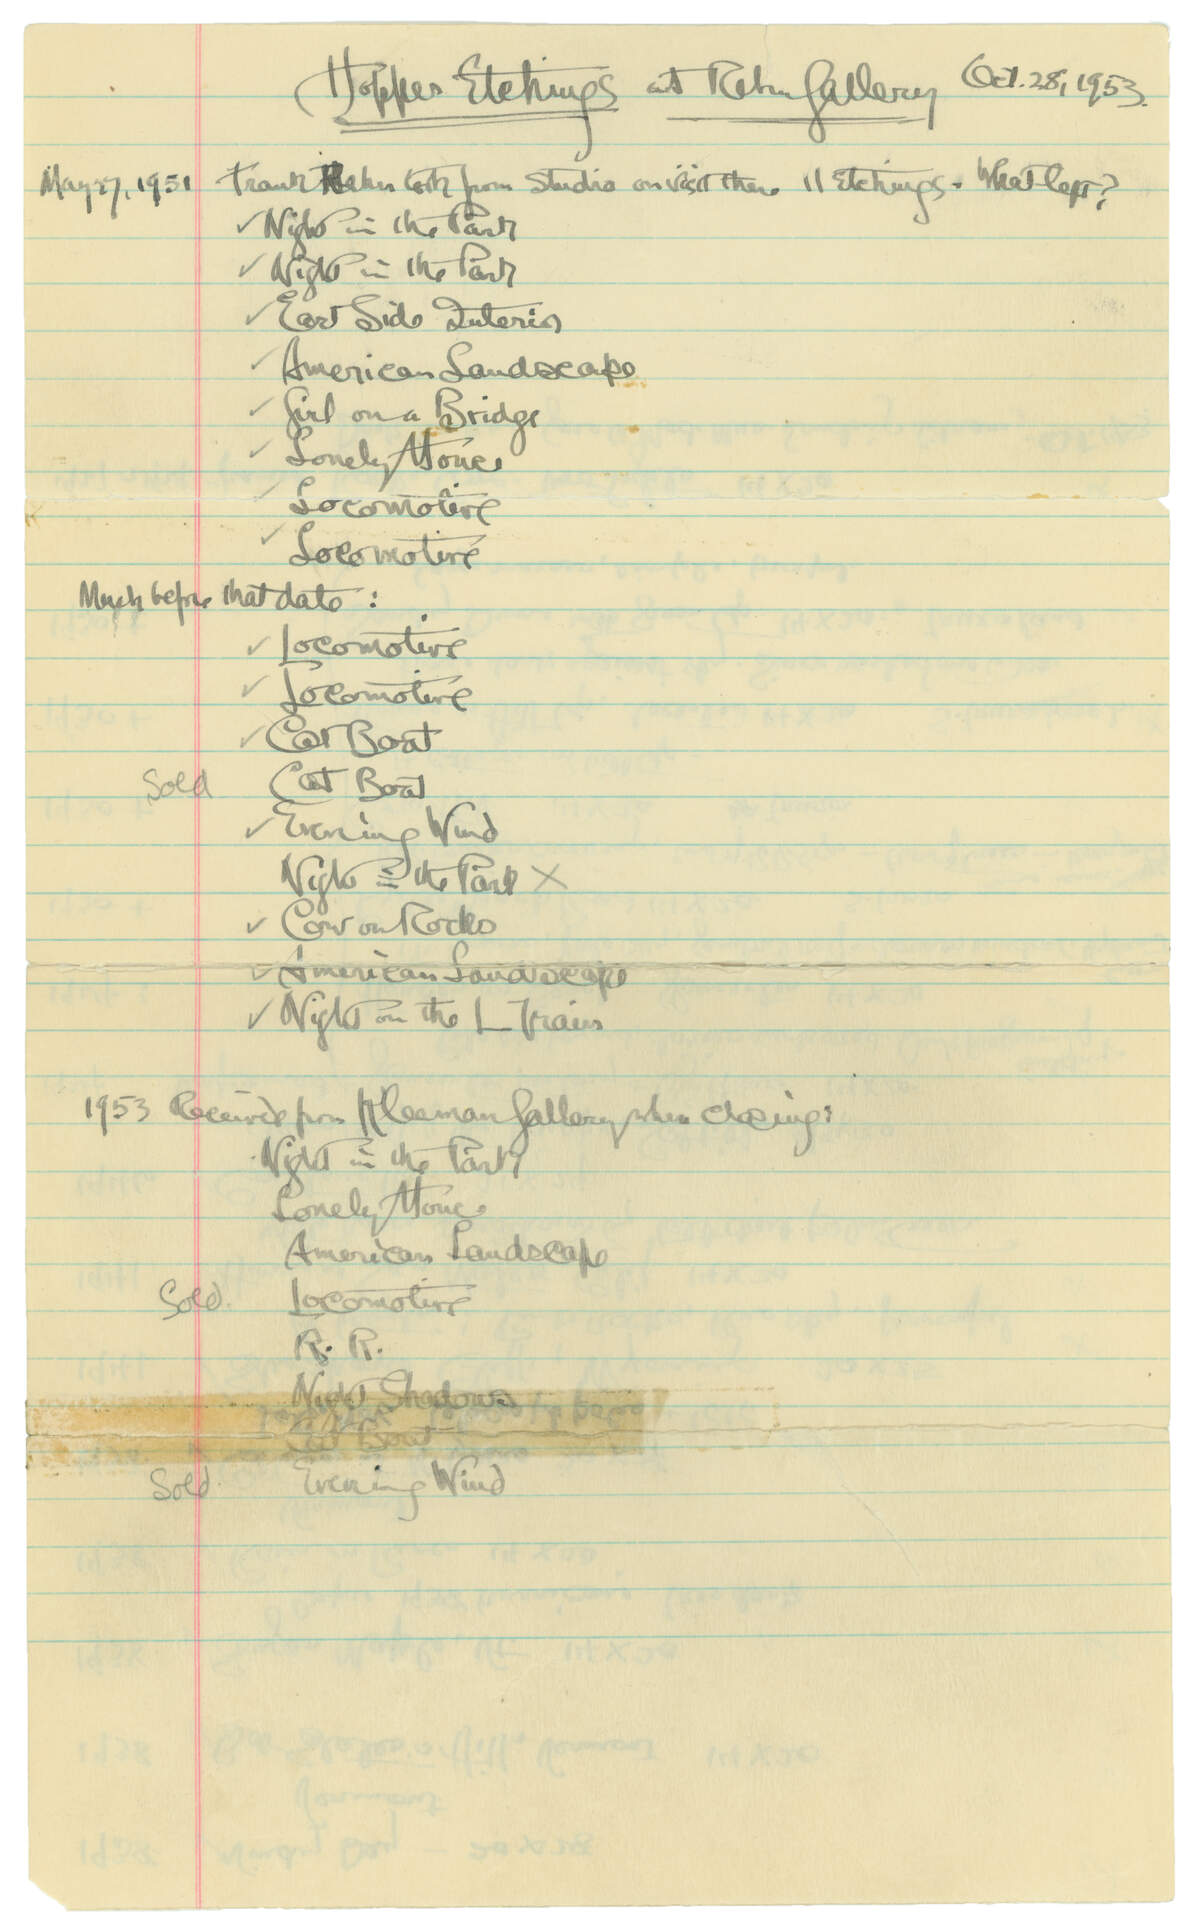 Hopper Etchings at Rehn Gallery Oct. 28, 1953.
May 27, 1951 Frank Rehn took from studio on visit there 11 Etchings - What left?
✓ Night in the Park
✓ Night in the Park
✓ East Side Interior
✓ American Landscape
✓ Girl on a Bridge
✓ Lonely House
✓ Locomotive
✓ Locomotive
Much before that date :
✓ Locomotive
✓ Locomotive
✓ Cat Boat
Sold Cat Boat
✓ Evening Wind
Night in the Park X
✓ Cow on Rocks
✓ American Landscape
✓ Night on the L Train
1953 Received from Kleeman Gallery when closing :
Night in the Park
Lonely House
American Landscape
Sold. Locomotive
R. R.
Night Shadows
Cat Boat
Sold. Evening Wind